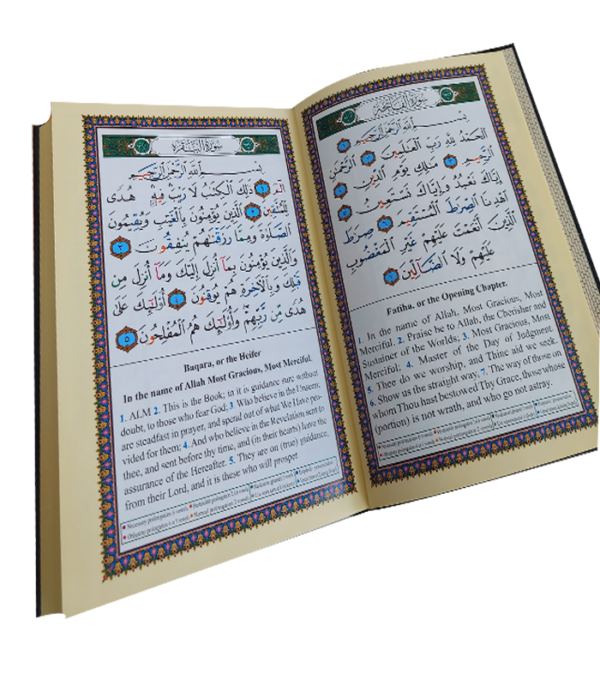 سورة الفاتحة
بِسْمِ اللَّهِ الرَّحْمَٰنِ الرَّحِيمِ ١
الْحَمْدُ لِلَّهِ رَبِّ الْعَالَمِينَ ٢ الرَّحْمَٰنِ
الرَّحِيمِ ٣ مَالِكِ يَوْمِ الدِّينِ ٤
إِيَّاكَ نَعْبُدُ وَإِيَّاكَ نَسْتَعِينُ ٥
اهْدِنَا الصِّرَاطَ الْمُسْتَقِيمَ ٦ صِرَاطَ
الَّذِينَ أَنْعَمْتَ عَلَيْهِمْ غَيْرِ الْمَغْضُوبِ
عَلَيْهِمْ وَلَا الضَّالِّينَ ٧
Fatiha, or the Opening Chapter.
1. In the name of Allah, Most Gracious, Most
Merciful. 2. Praise be to Allah, the Cherisher and
Sustainer of the Worlds; 3. Most Gracious, Most
Merciful; 4. Master of the Day of Judgment.
5. Thee do we worship, and Thine aid we seek,
6. Show us the straight way, 7. The way of those on
whom Thou hast bestowed Thy Grace, those whose
(portion) is not wrath, and who go not astray.
سورة البقرة
بِسْمِ اللَّهِ الرَّحْمَٰنِ الرَّحِيمِ
الم ١ ذَٰلِكَ الْكِتَابُ لَا رَيْبَ فِيهِ هُدًى
لِلْمُتَّقِينَ ٢ الَّذِينَ يُؤْمِنُونَ بِالْغَيْبِ وَيُقِيمُونَ
الصَّلَاةَ وَمِمَّا رَزَقْنَاهُمْ يُنْفِقُونَ ٣
وَالَّذِينَ يُؤْمِنُونَ بِمَا أُنْزِلَ إِلَيْكَ وَمَا أُنْزِلَ مِنْ
قَبْلِكَ وَبِالْآخِرَةِ هُمْ يُوقِنُونَ ٤ أُولَٰئِكَ عَلَىٰ
هُدًى مِنْ رَبِّهِمْ وَأُولَٰئِكَ هُمُ الْمُفْلِحُونَ ٥
Baqara, or the Heifer
In the name of Allah Most Gracious, Most Merciful.
1. ALM 2. This is the Book; in it is guidance sure without
doubt, to those who fear God; 3. Who believe in the Unseen,
are steadfast in prayer, and spend out of what We have pro-
vided for them; 4. And who believe in the Revelation sent to
thee, and sent before thy time, and (in their hearts) have the
assurance of the Hereafter. 5. They are on (true) guidance,
from their Lord, and it is these who will prosper